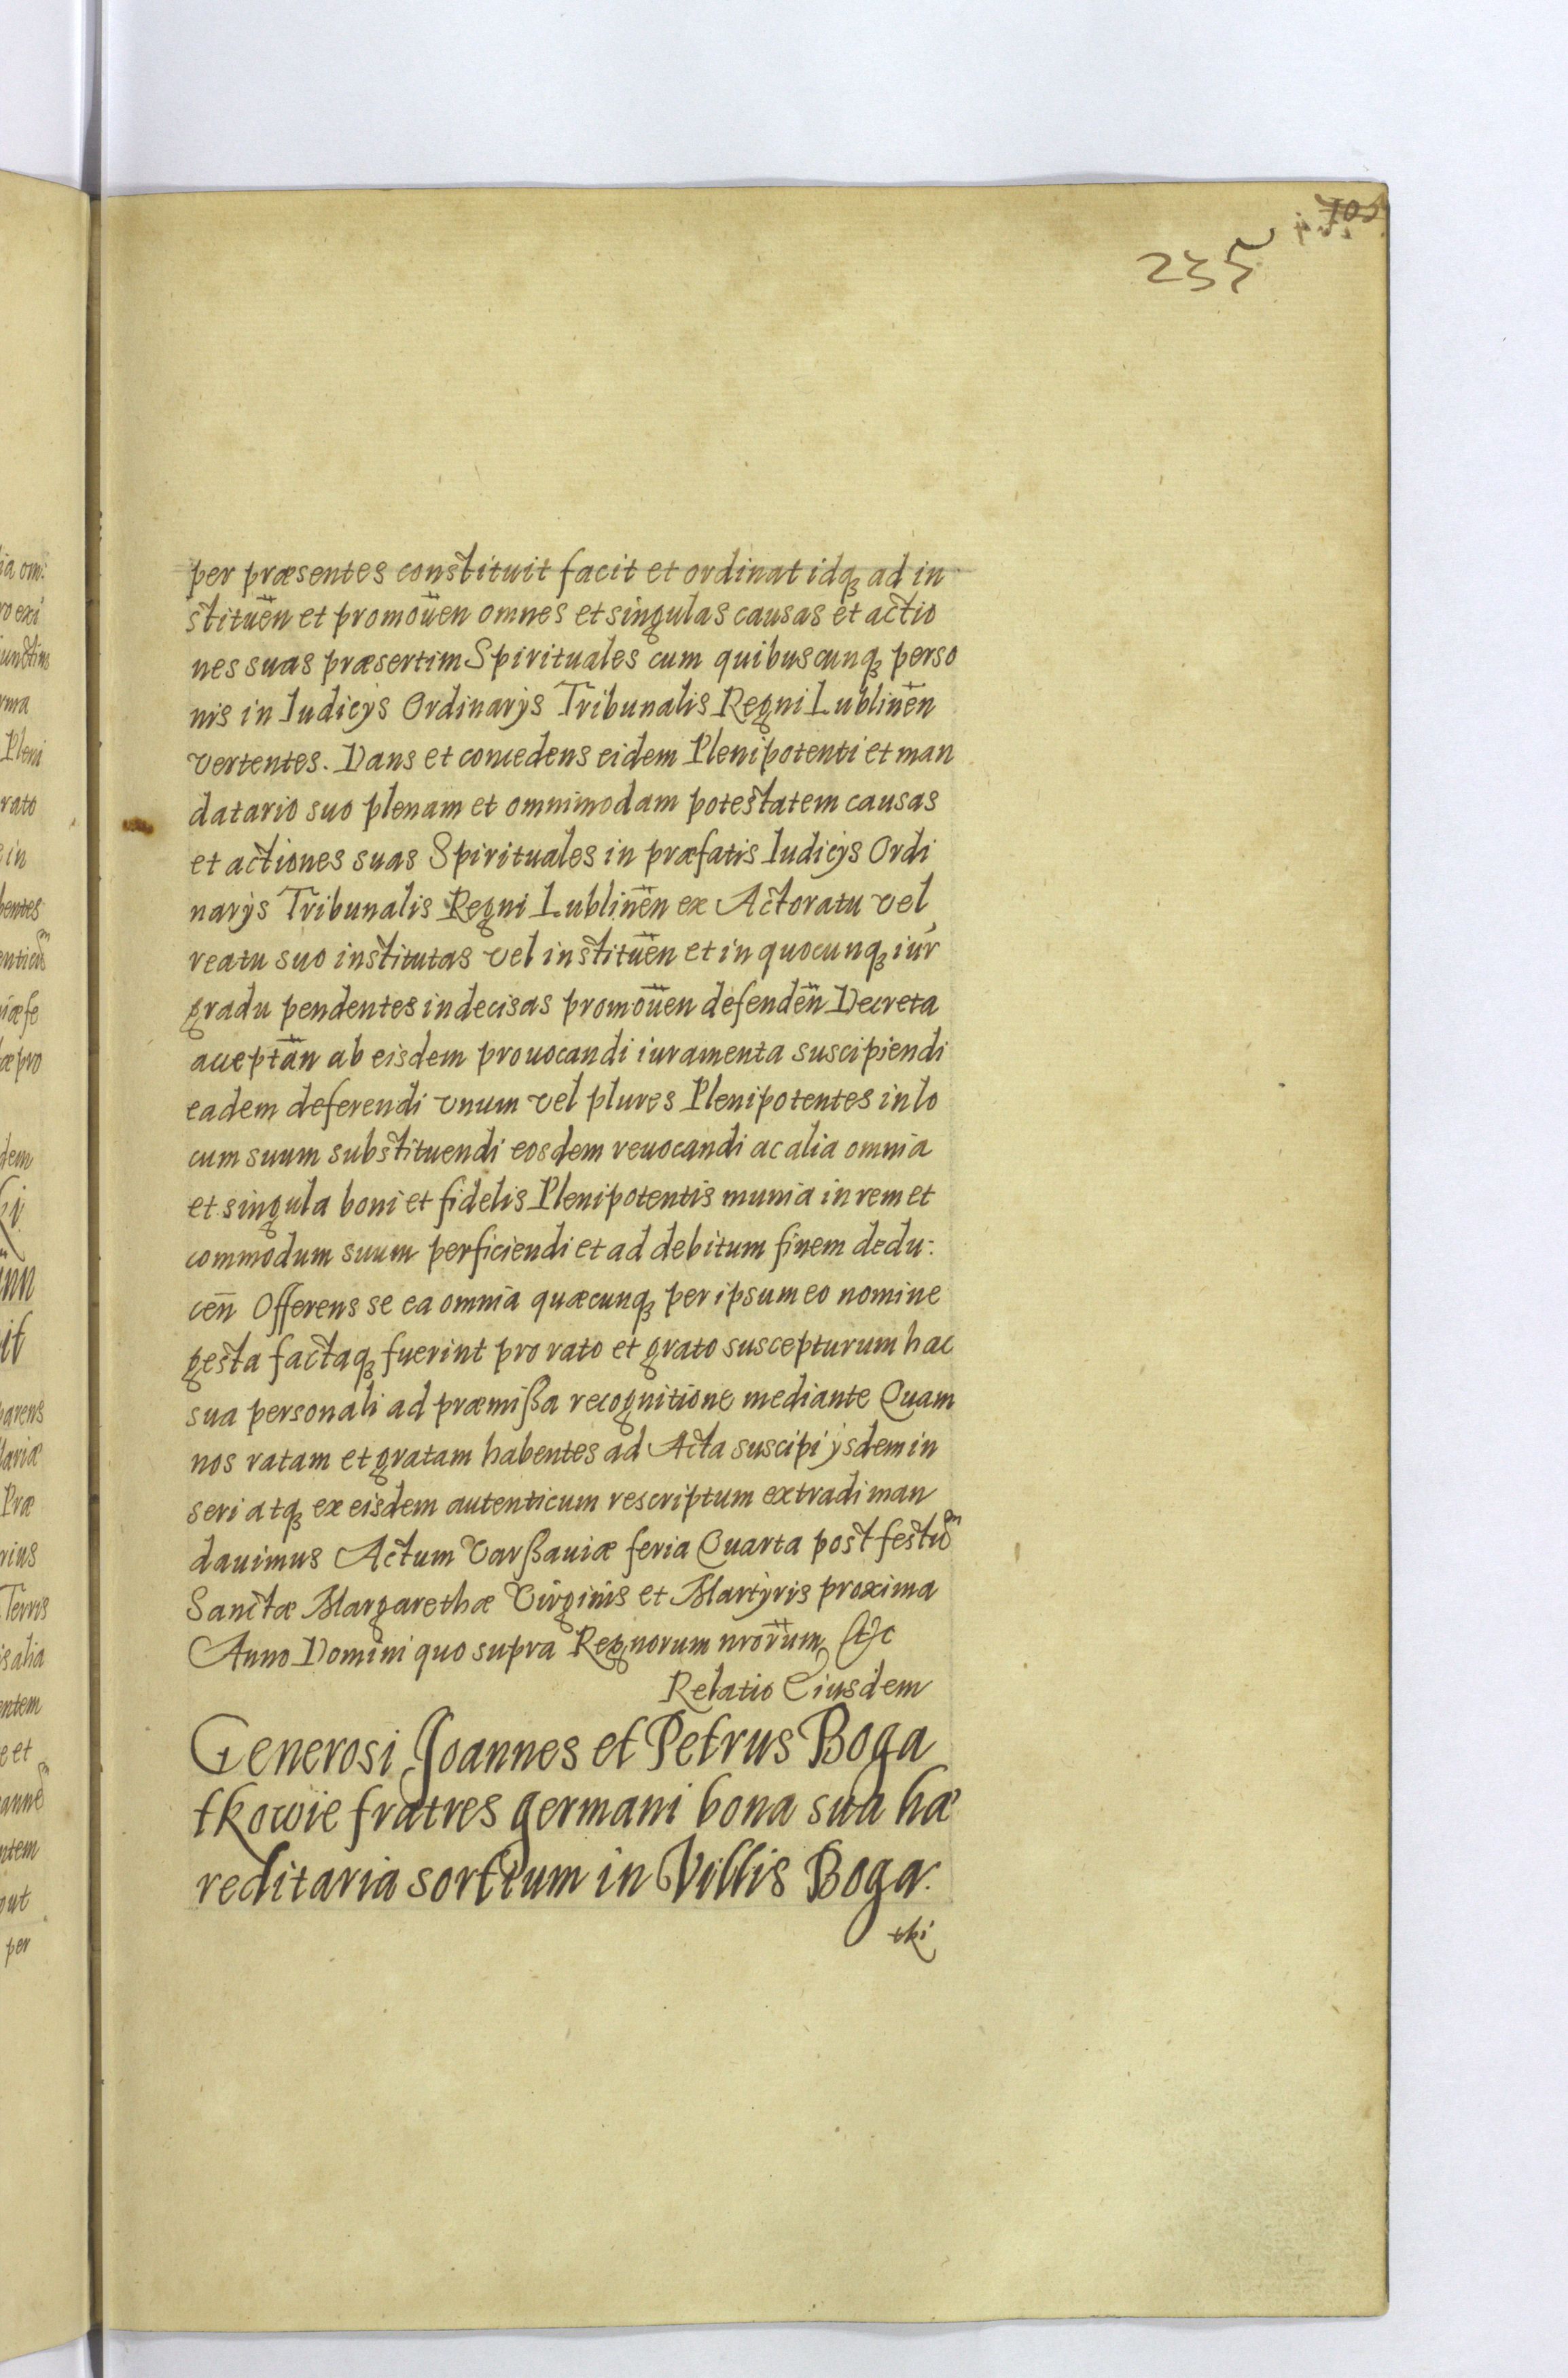 235
per præsentes constituit facit et ordinat idq̃ ad in
stituen̄ et promouen̄ omnes et singulas causas et actio
nes suas præsertim Spirituales cum quibuscunq̃ perso
nis in Iudicÿs Ordinarÿs Tribunalis Regni Lublinen̄
vertentes. Dans et concedens eidem Plenipotenti et man
datario suo plenam et omnimodam potestatem causas
et actiones suas Spirituales in præfatis Iudicÿs Ordi
narÿs Tribunalis Regni Lublinen̄ ex Actoratu vel
reatu suo institutas vel instituen̄ et in quocunq̃ iur̄
gradu pendentes indecisas promouen̄ defenden̄ Decreta
acceptan̄ ab eisdem prouocandi iuramenta suscipiendi
eadem deferendi vnum vel plures Plenipotentes in lo
cum suum substituendi eosdem reuocandi ac alia omnia
et singula boni et fidelis Plenipotentis munia in rem et
commodum suum perficiendi et ad debitum finem dedu:
cen̄ Offerens se ea omnia quæcunq̃ per ipsum eo nomine
gesta factaq̃ fuerint pro rato et grato suscepturum hac
sua personali ad præmißa recognitione mediante Quam
nos ratam et gratam habentes ad Acta suscipi ÿsdem in
seri atq̃ ex eisdem autenticum rescriptum extradi man
dauimus Actum Varßauiæ feria Quarta post festuͫ
Sanctæ Margarethæ Virginis et Martÿris proxima
Anno Domini quo supra Regnorum nror̄um &c
Relatio Eiusdem
Generosi Joannes et Petrus Boga
tkowie fratres germani bona sua hæ
reditaria sortium in Villis Boga:
tki